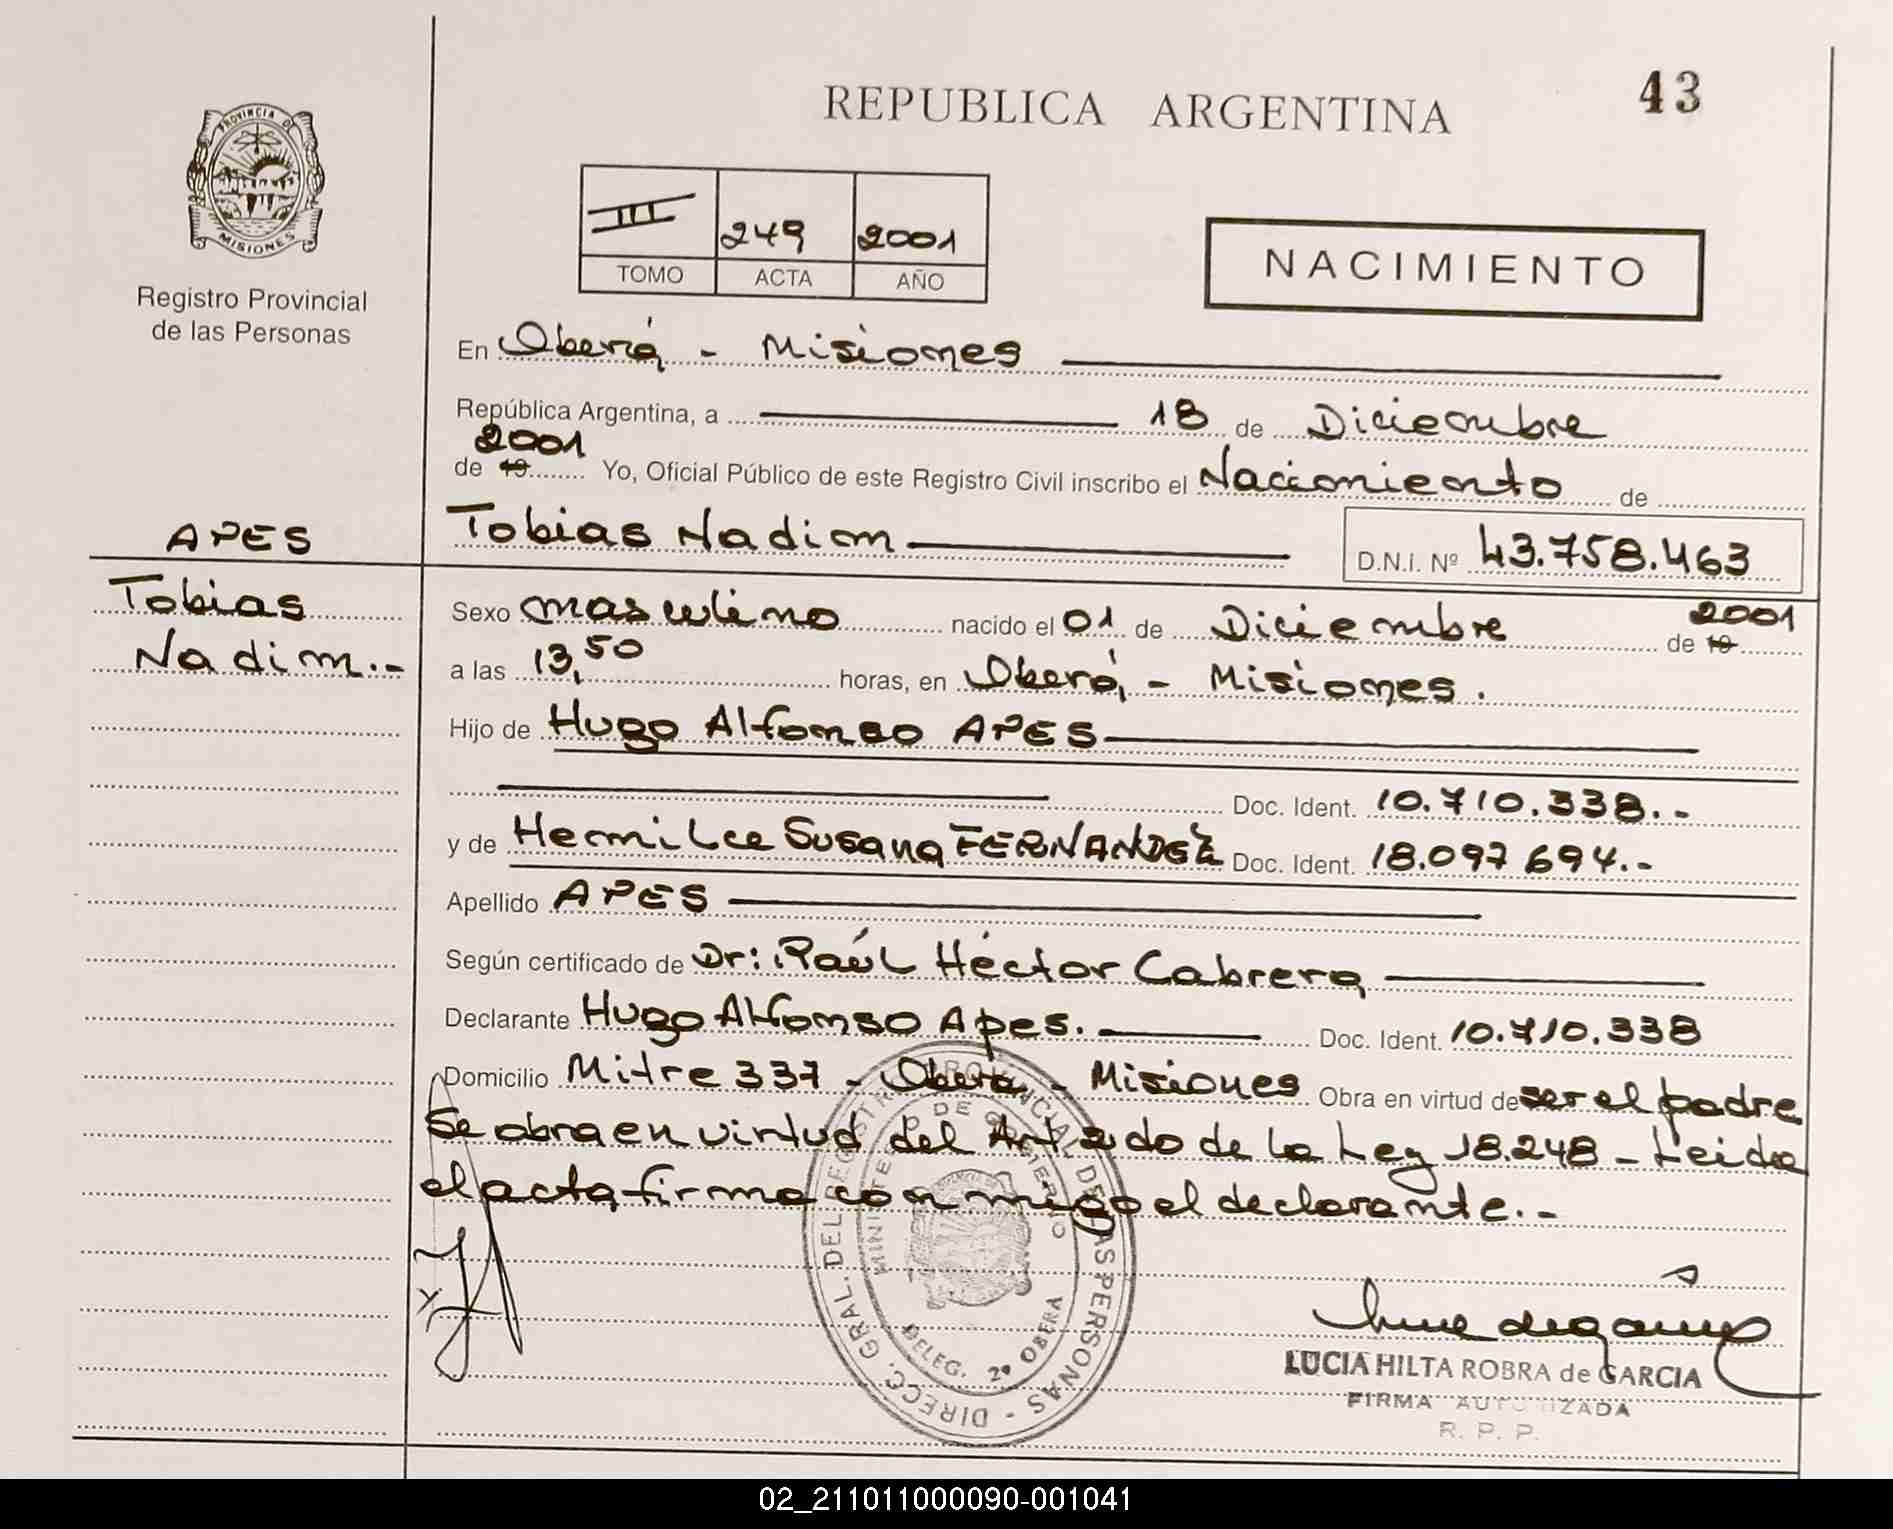 43
REPUBLICA ARGENTINA
PROVINCIA DE
MISIONES
Registro Provincial
de las Personas
III 249 2001
TOMO ACTA AÑO
NACIMIENTO
En Oberá - Misiones
República Argentina, a 18 de Diciembre
2001
de 19 Yo, Oficial Público de este Registro Civil inscribo el Nacimiento de
Tobias Nadim D.N.I. Nº 43.758.463
APES
Tobias
Nadim.-
Sexo masculino nacido el 01 de Diciembre de 19 2001
a las 13,50 horas, en Oberá, - Misiones.
Hijo de Hugo Alfonso APES
Doc. Ident. 10.710.338.-
y de Hermilce Susana FERNANDEZ Doc. Ident. 18.097 694.-
Apellido APES
Según certificado de Dr: Raúl Héctor Cabrera
Declarante Hugo Alfonso Apes. Doc. Ident. 10.710.338
Domicilio Mitre 337 - Oberá - Misiones Obra en virtud de ser el padre
Se obra en virtud del Art 2do de la Ley 18.248 - Leida
el acta, firma con migo el declarante.-
DIRECC. GRAL. DEL REGISTRO PROVINCIAL DE LAS PERSONAS -
MINISTERIO DE GOBIERNO
DELEG. 2º OBERA
LUCIA HILTA ROBRA de GARCIA
FIRMA AUTORIZADA
R. P. P.
02_211011000090-001041